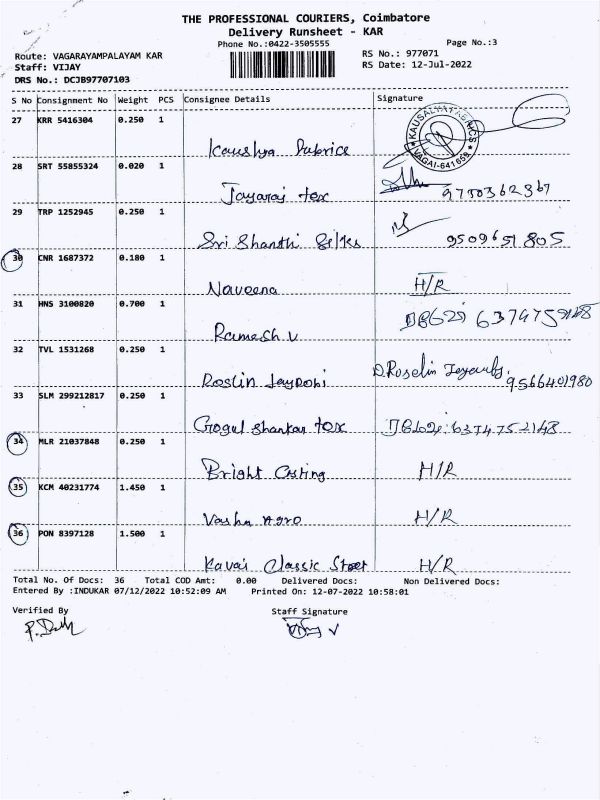 THE PROFESSIONAL COURIERS, Coimbatore
Delivery Runsheet - KAR
Phone No.:0422-3505555 Page No.:3
Route: VAGARAYAMPALAYAM KAR RS No.: 977071
Staff: VIJAY RS Date: 12-Jul-2022
DRS No.: DCJB97707103
S No Consignment No Weight PCS Consignee Details Signature
27 KRR 5416304 0.250 1
Kaushya Fabrics
KAUSALYA FABRICS VAGAI-641659
28 SRT 55855324 0.020 1
Jayaraj tex 9750362367
29 TRP 1252945 0.250 1
Sri Shanthi Silks 9509651805
30 CNR 1687372 0.180 1
Naveena H/R
31 HNS 3100820 0.700 1
Ramesh V
32 TVL 1531268 0.250 1
Roslin Jayrobi D.Roselin 9566401980
33 SLM 299212817 0.250 1
Gogul Shankar tex 6374752148
34 MLR 21037848 0.250 1
Bright Casting H/R
35 KCM 40231774 1.450 1
Varsha Agro H/R
36 PON 8397128 1.500 1
Kavai Classic Steet H/R
Total No. Of Docs: 36 Total COD Amt: 0.00 Delivered Docs: Non Delivered Docs:
Entered By :INDUKAR 07/12/2022 10:52:09 AM Printed On: 12-07-2022 10:58:01
Verified By Staff Signature